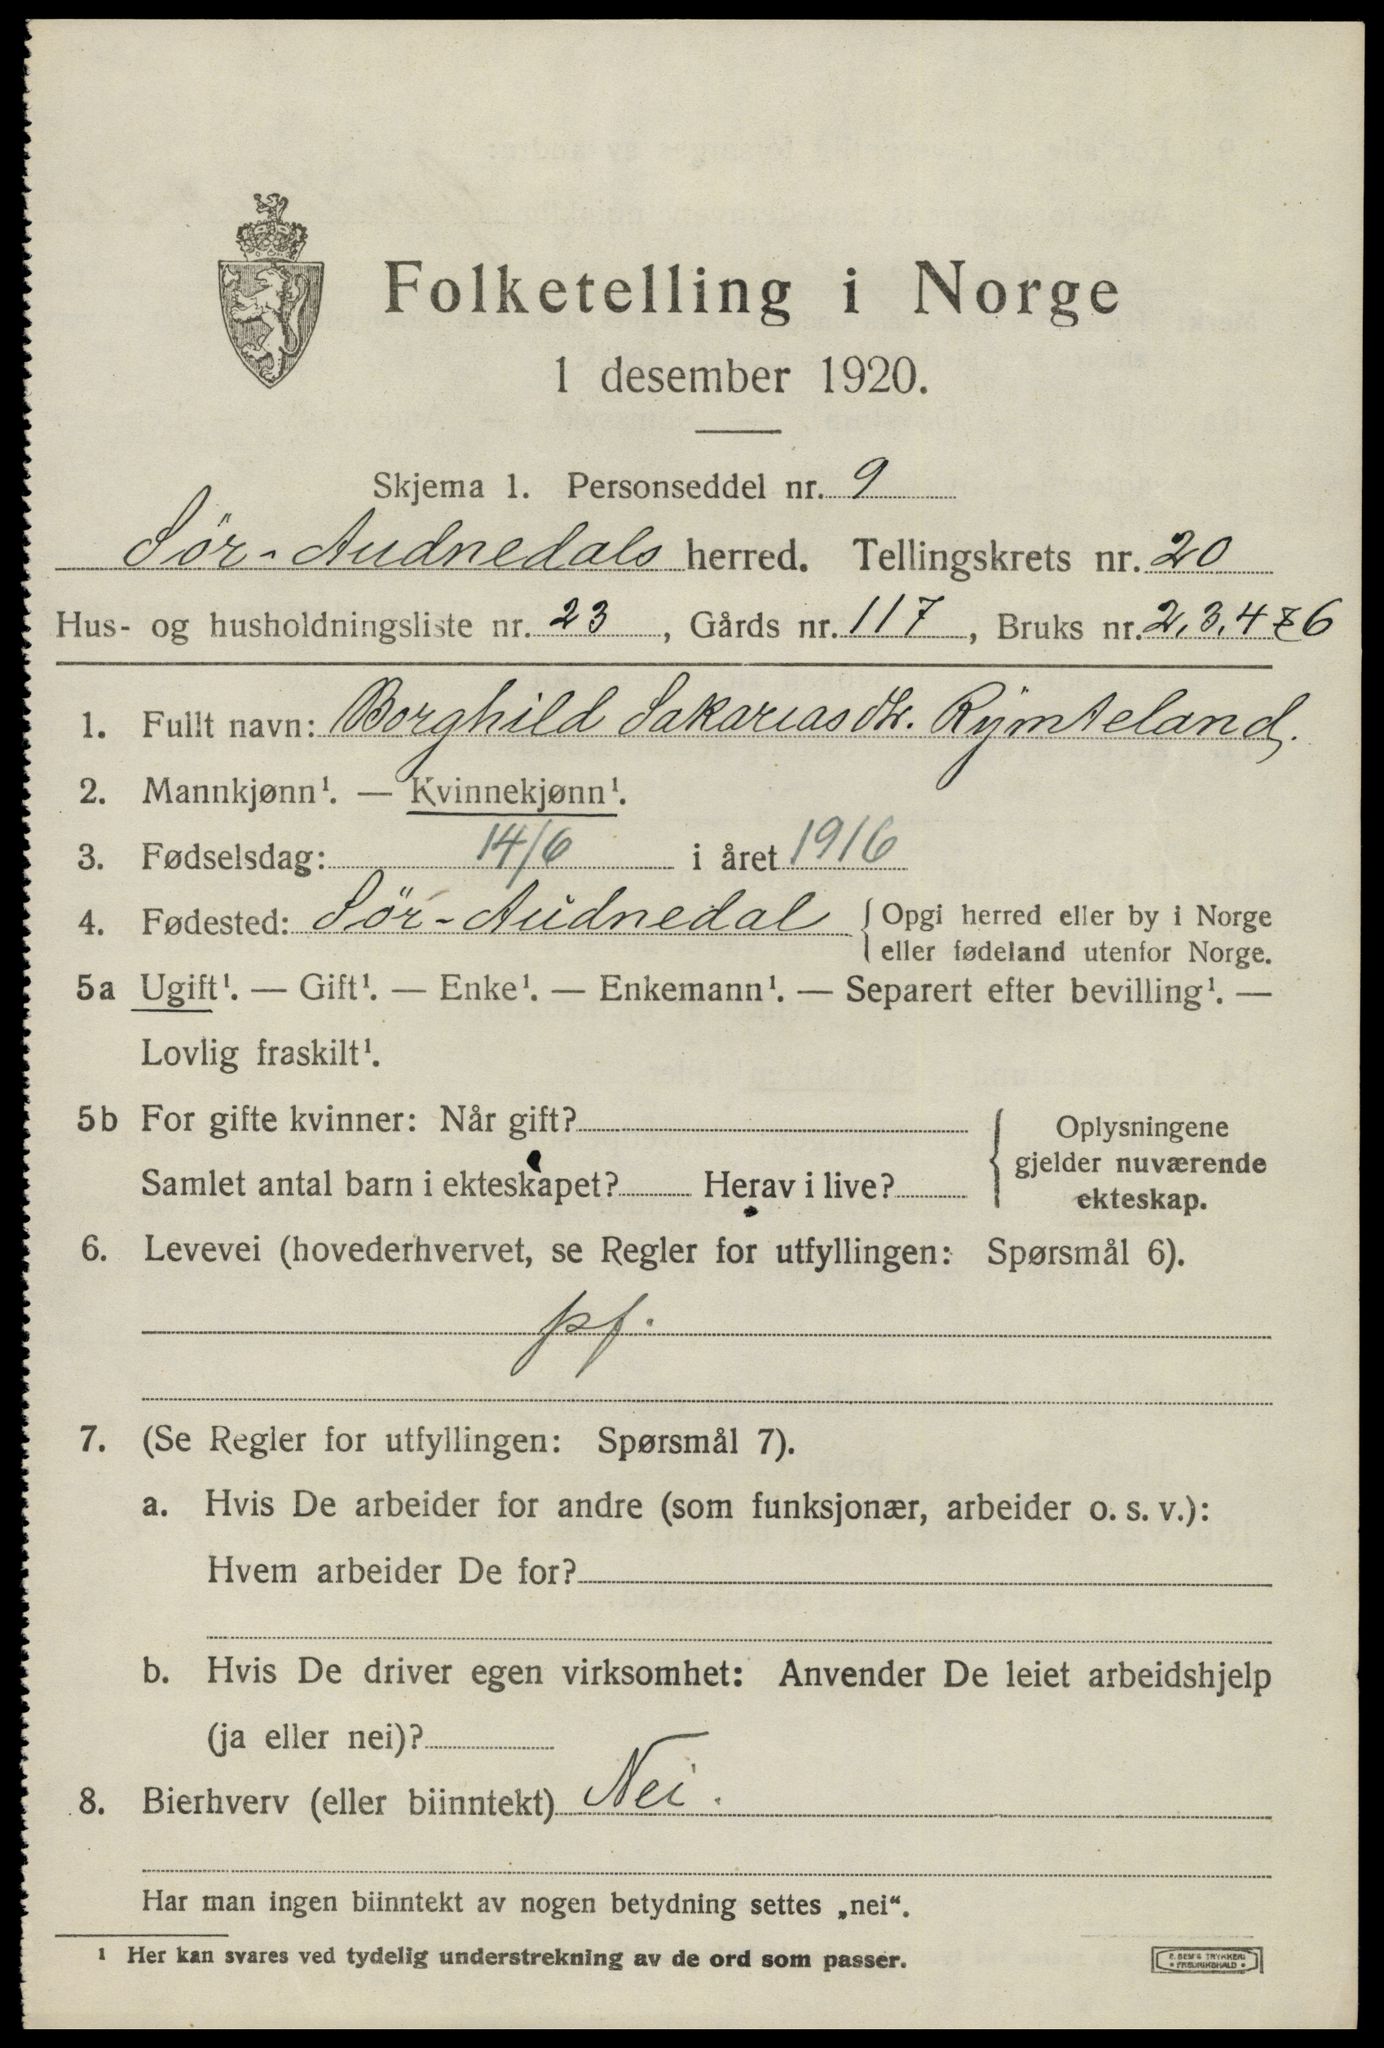 Folketelling i Norge
1 desember 1920.
Skjema 1. Personseddel nr. 9
Sör-Audnedals herred. Tellingskrets nr. 20
Hus- og husholdningsliste nr. 23, Gårds nr. 117, Bruks nr. 2,3,4 & 6
1. Fullt navn: Borghild Sakariasdtr. Rÿmteland.
2. Mannkjønn¹. — Kvinnekjønn¹.
3. Fødselsdag: 14/6 i året 1916
4. Fødested: Sör-Audnedal {Opgi herred eller by i Norge
eller fødeland utenfor Norge.
5a Ugift¹. — Gift¹. — Enke¹. — Enkemann¹. — Separert efter bevilling¹. —
Lovlig fraskilt¹.
5b For gifte kvinner: Når gift? { Oplysningene
gjelder nuværende
ekteskap.
Samlet antal barn i ekteskapet? Herav i live?
6. Levevei (hovederhvervet, se Regler for utfyllingen: Spørsmål 6).
pf.
7. (Se Regler for utfyllingen: Spørsmål 7).
a. Hvis De arbeider for andre (som funksjonær, arbeider o. s. v.):
Hvem arbeider De for?
b. Hvis De driver egen virksomhet: Anvender De leiet arbeidshjelp
(ja eller nei)?
8. Bierhverv (eller biinntekt) Nei.
Har man ingen biinntekt av nogen betydning settes „nei“.
¹ Her kan svares ved tydelig understrekning av de ord som passer.
TRYKKERI
FREDRIKSHALD